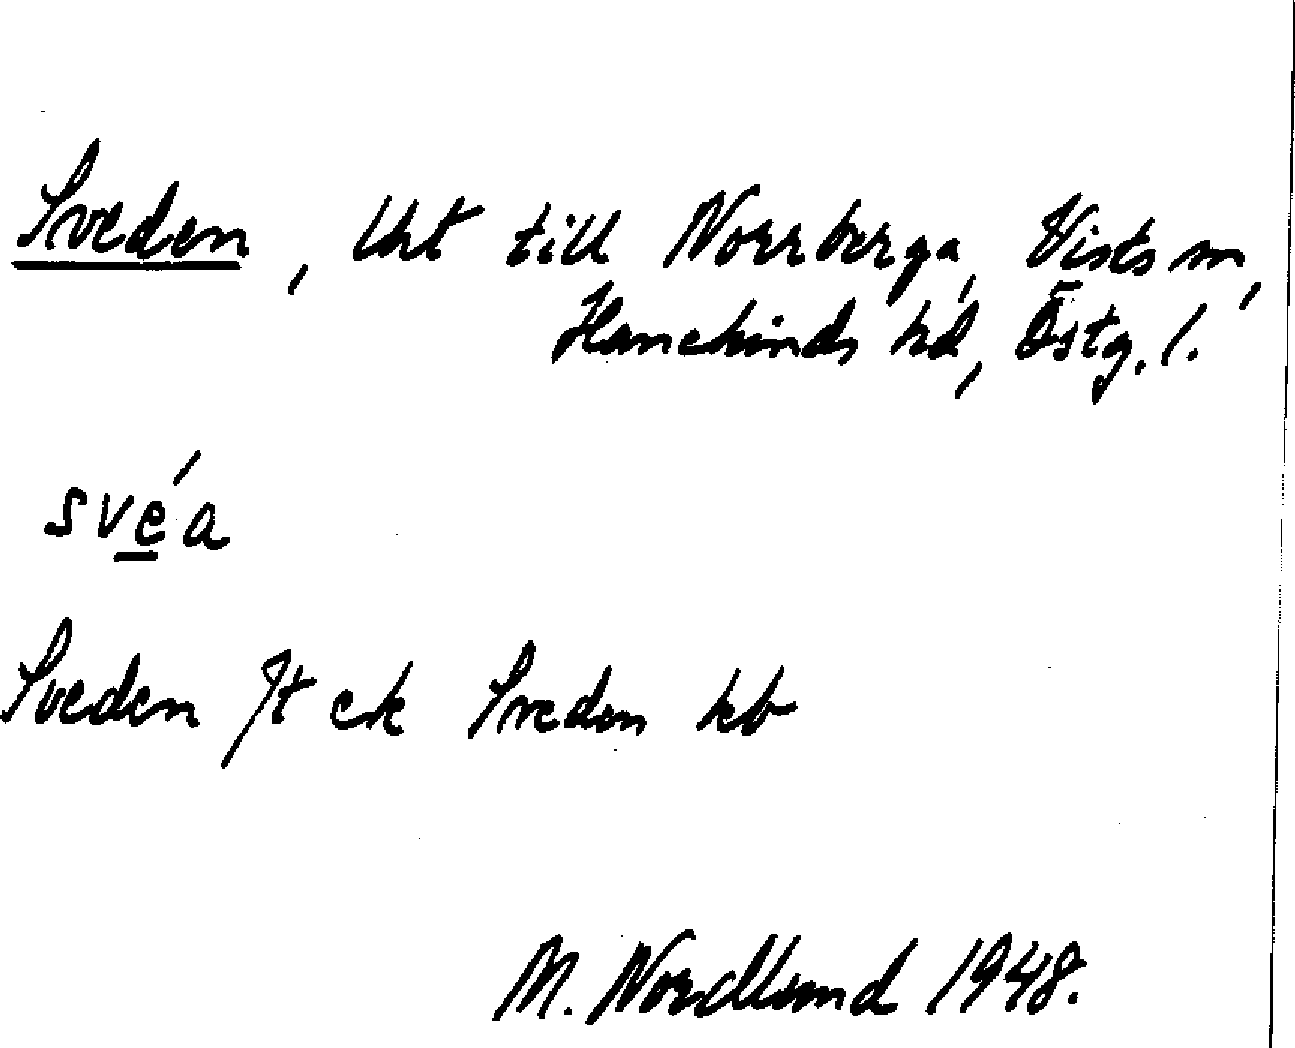 Sveden, Lht till Norrberga, Vists sn,
Hanekinds hd, Östg. l.
sve̲´a
Sveden Jt ek Sveden kb
M. Nordlund 1948.